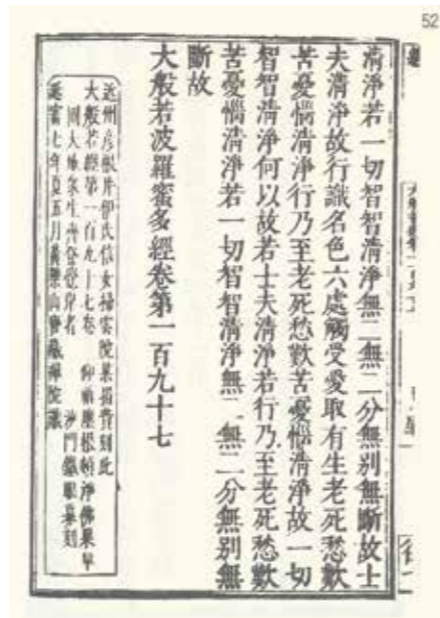 52
清淨若一切智智清淨無二無二分無別無斷故士
夫清淨故行識名色六處觸受愛取有生老死愁歎
苦憂惱清淨行乃至老死愁歎苦憂惱清淨故一切
智智清淨何以故若士夫清淨若行乃至老死愁歎
苦憂惱清淨若一切智智清淨無二無二分無別無
斷故
大般若波羅蜜多經卷第一百九十七
州彥根井伊氏信女掃雲院某捐貲刻此
大般若經第一百九十七卷 仰
沙門鐵眼募刻
七年五月山禪院